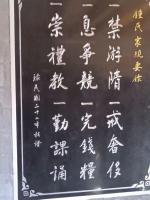 鍾氏家規要條
一禁游惰一戒奢侈
一息爭競一完錢糧
一崇禮教一勤課誦
民國二十二年